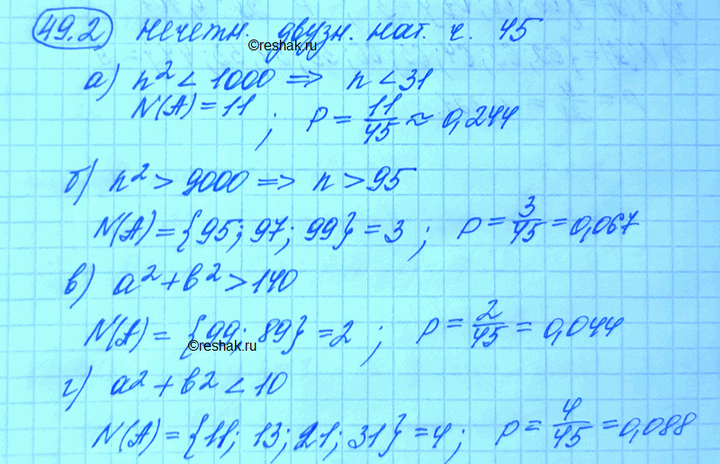 49.2 нечетн. двузн. нат. ч. 45
©reshak.ru
а) n² < 1000 => n < 31
N(A) = 11 ; P = 11/45 ≈ 0,244
б) n² > 9000 => n > 95
N(A) = {95; 97; 99} = 3 ; P = 3/45 = 0,067
в) a² + b² > 140
N(A) = {99; 89} = 2 ; P = 2/45 = 0,044
©reshak.ru
г) a² + b² < 10
N(A) = {11; 13; 21; 31} = 4; P = 4/45 = 0,088